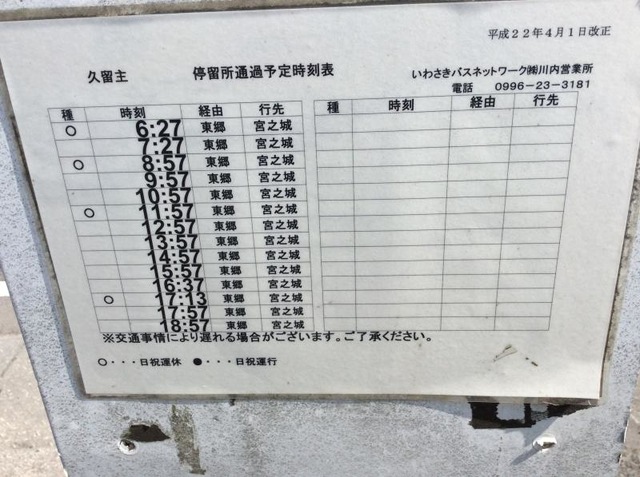 平成22年4月1日改正
久留主 停留所通過予定時刻表 いわさきバスネットワーク㈱川内営業所
電話 0996-23-3181
種 時刻 経由 行先 種 時刻 経由 行先
○ 6:27 東郷 宮之城
7:27 東郷 宮之城
○ 8:57 東郷 宮之城
9:57 東郷 宮之城
10:57 東郷 宮之城
○ 11:57 東郷 宮之城
12:57 東郷 宮之城
13:57 東郷 宮之城
14:57 東郷 宮之城
15:57 東郷 宮之城
16:37 東郷 宮之城
○ 17:13 東郷 宮之城
17:57 東郷 宮之城
18:57 東郷 宮之城
※交通事情により遅れる場合がございます。ご了承ください。
○・・・日祝運休 ●・・・日祝運行